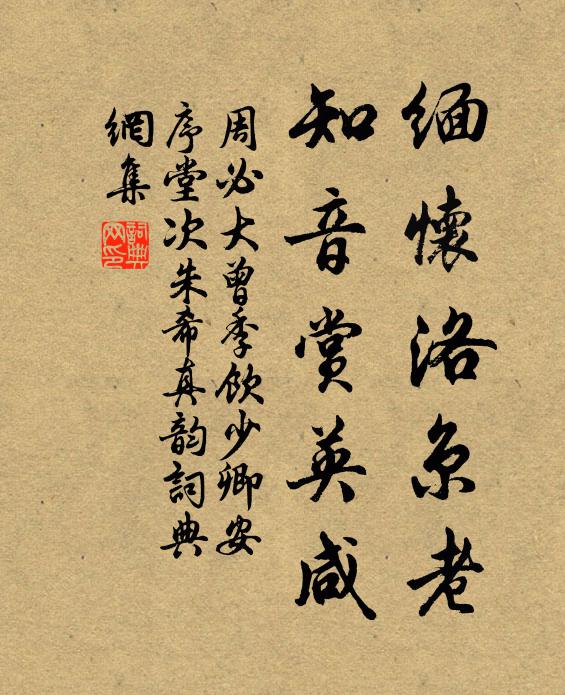 緬懷洛京老
知音賞英咸
周必大曾季飲少卿安
序堂次朱希真韵詞典
網集
詞典網印